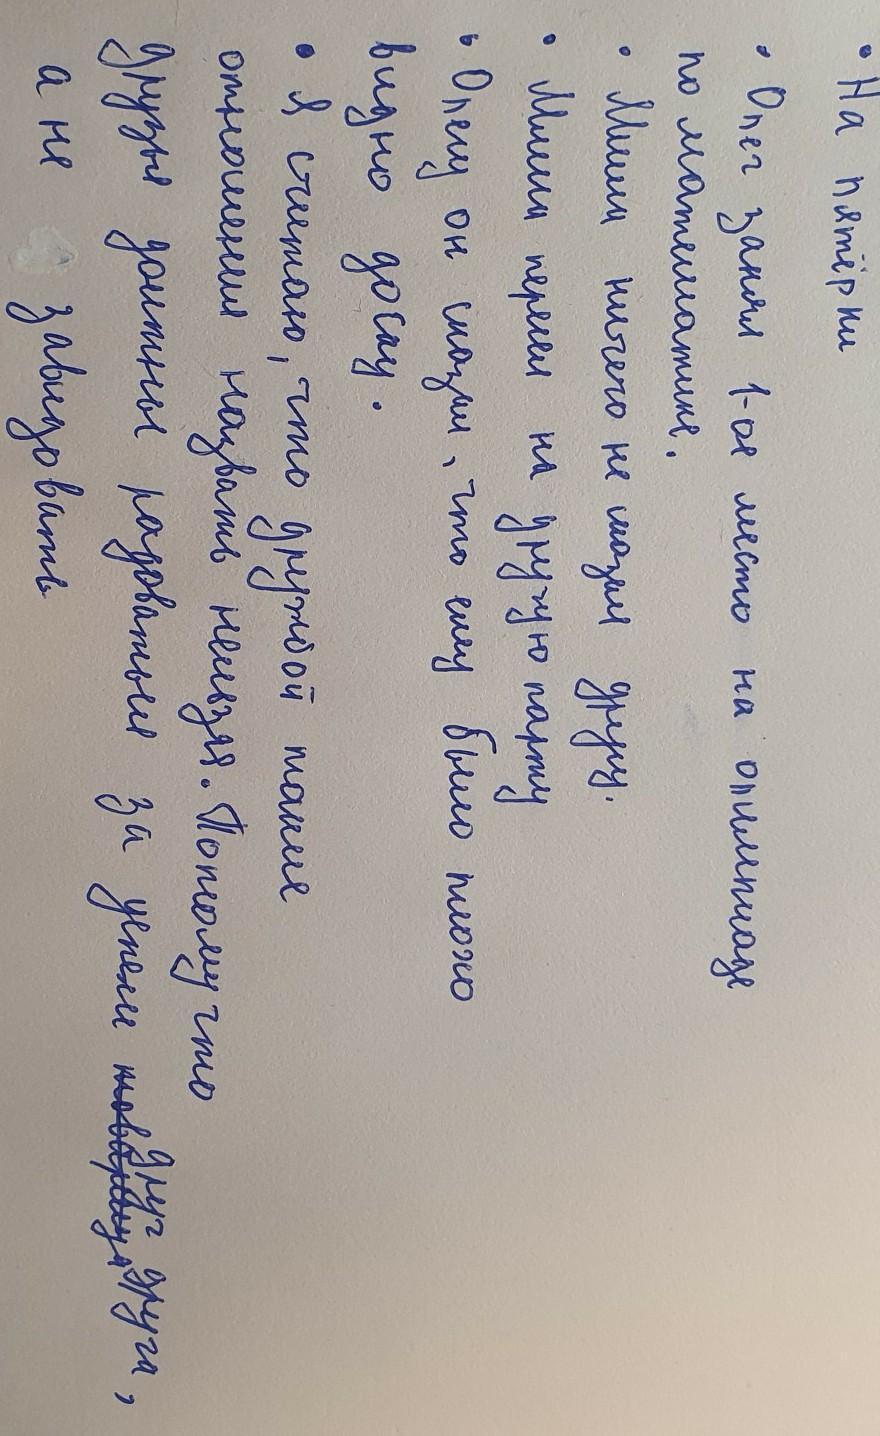 • На пятёрки
• Олег занял 1-ое место на олимпиаде
по математике.
• Миша ничего не сказал другу.
• Миша пересел на другую парту
• Олегу он сказал, что ему было плохо
видно доску.
• Я считаю, что дружбой такие
отношения назвать нельзя. Потому что
друзья должны радоваться за успехи товарища друг друга,
а не завидовать